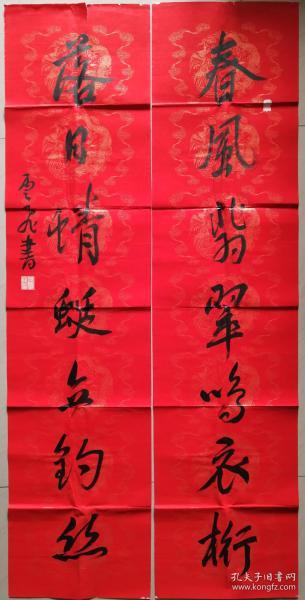 春風翡翠鳴衣桁
落日蜻蜓立釣絲
書
孔夫子旧书网